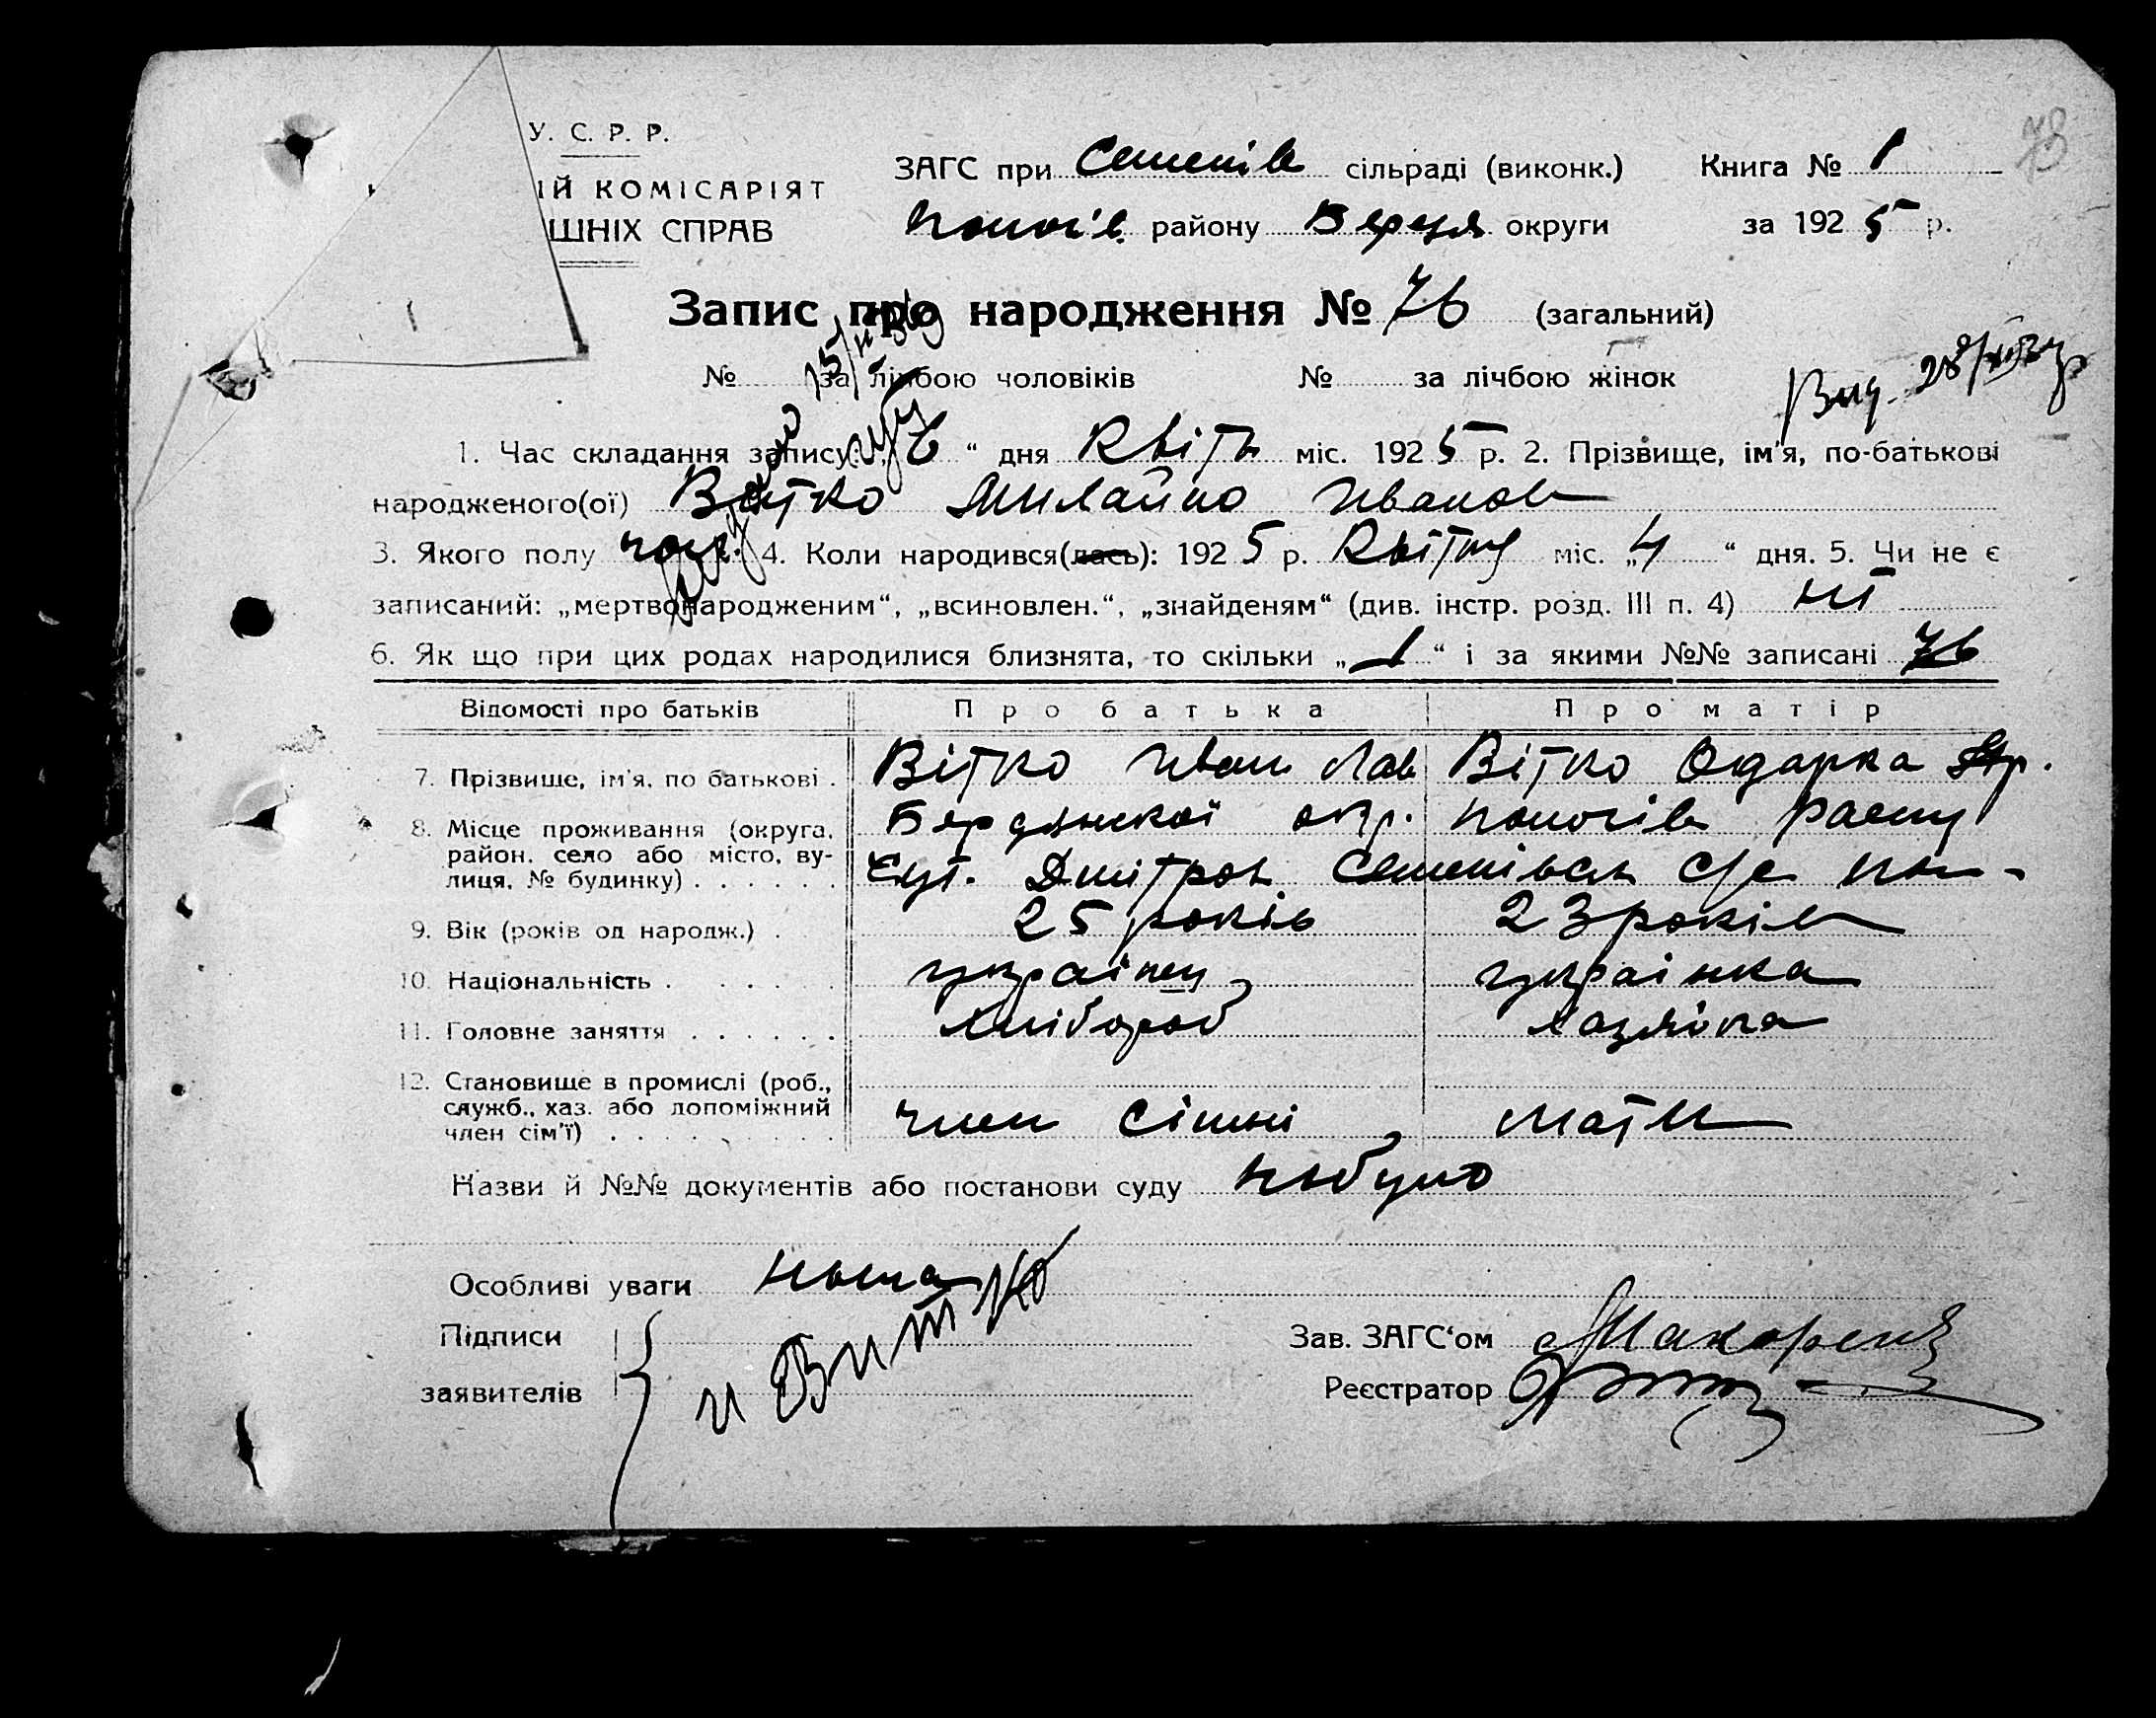 У. С. Р. Р.
ІЙ КОМІСАРІЯТ
ШНІХ СПРАВ
ЗАГС при Семенів сільраді (виконк.) Книга № 1
Пологів. району Бердя округи за 1925 р.
73
Запис про народження № 76 (загальний)
№ за лічбою чоловіків № за лічбою жінок
Вид. 28/
15/
1. Час складання запису: 6 “ дня Квітн міс. 1925 р. 2. Прізвище, ім'я, по-батькові
народженого(ої) Вітко Михайло Іванов
3. Якого полу чол. 4. Коли народився(лась): 1925 р. Квітня міс. „4 “ дня. 5. Чи не є
записаний: „мертвонародженим“, „всиновлен.“, „знайденям“ (див. інстр. розд. III п. 4) ні
6. Як що при цих родах народилися близнята, то скільки „1“ і за якими №№ записані 76
Відомості про батьків Про батька Про матір
7. Прізвище, ім'я, по батькові . Вітко Иван Лав Вітко Одарка
8. Місце проживання (округа, район, село або місто, вулиця, № будинку) . . . . . . Бердянської окр. Пологів раену
Дмітров. Семенівск с/с
9. Вік (років од народж.) . 25 років 23 років
10. Національність . . . . . . українец українка
11. Головне заняття . . . . . . хлібороб хазяйка
12. Становище в промислі (роб., служб., хаз. або допоміжний член сім'ї) . . . . . . . . член сімні мати
Назви й №№ документів або постанови суду небуло
Особливі уваги нема
Підписи
заявителів и Витко
Зав. ЗАГС‘ом Макорен
Реєстратор